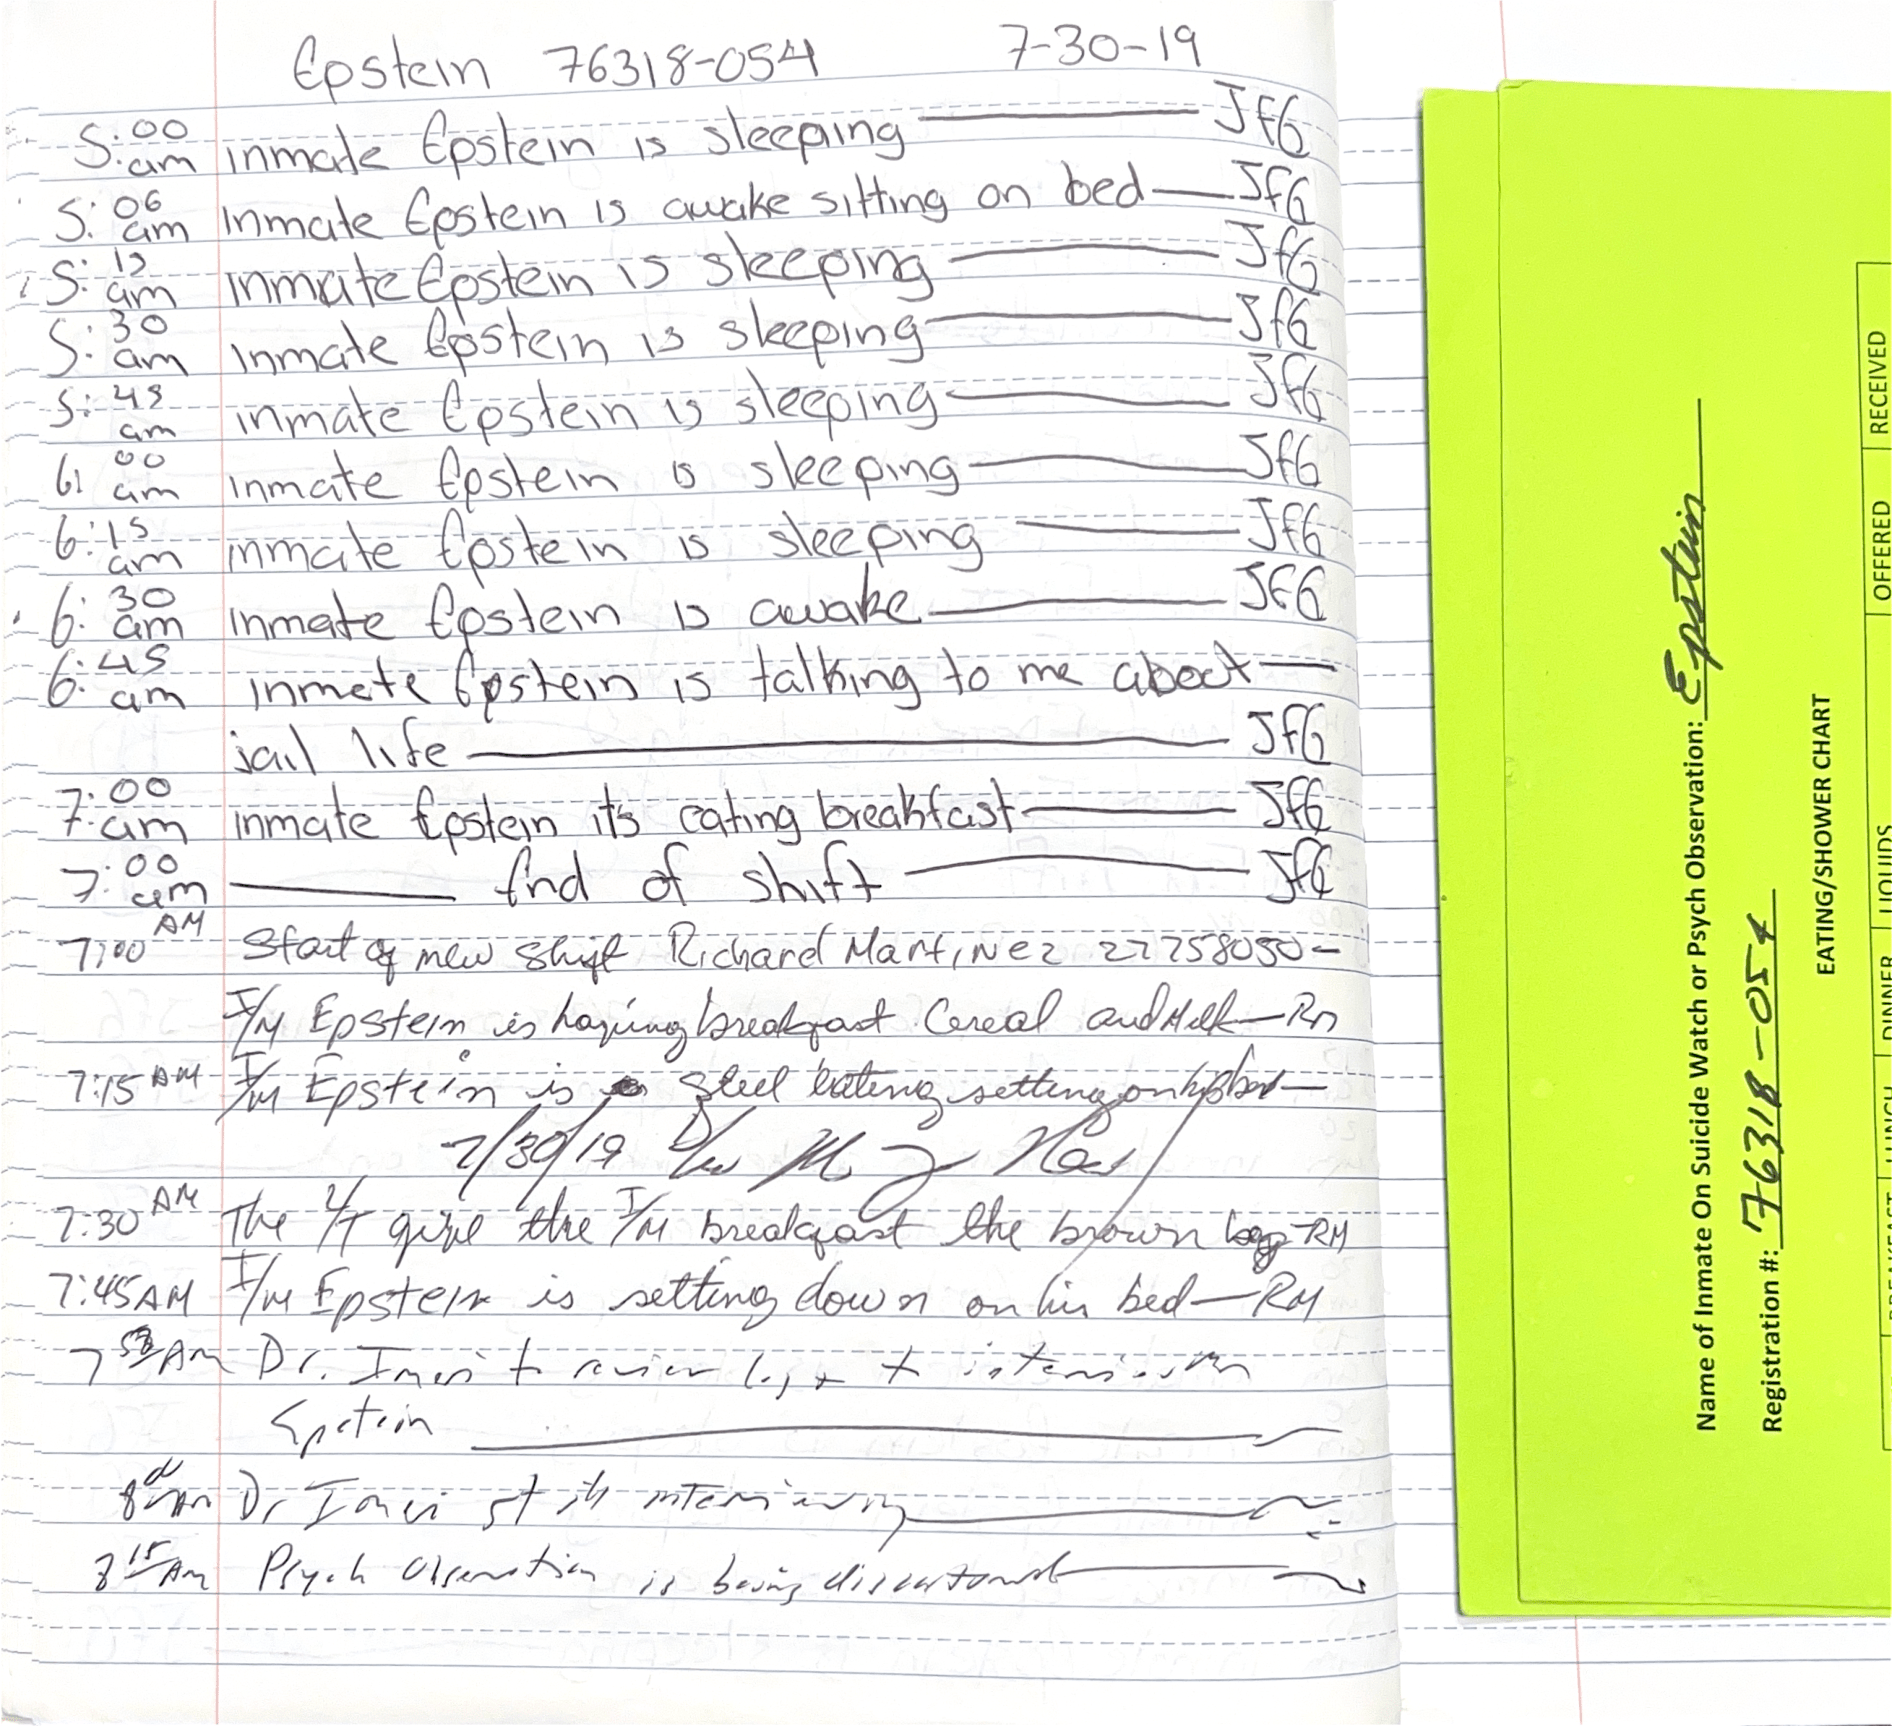 Epstein 76318-054 7-30-19
5:00 am inmate Epstein is sleeping JFG
5:06 am inmate Epstein is awake sitting on bed JFG
5:15 am inmate Epstein is sleeping JFG
5:30 am inmate Epstein is sleeping JFG
5:45 am inmate Epstein is sleeping JFG
6:00 am inmate Epstein is sleeping JFG
6:15 am inmate Epstein is sleeping JFG
6:30 am inmate Epstein is awake JFG
6:45 am inmate Epstein is talking to me about
jail life JFG
7:00 am inmate Epstein its eating breakfast JFG
7:00 am End of shift JFG
7:00 AM Start of new shift Richard Martinez 27758050-
I/M Epstein is having breakfast Cereal and Milk-RM
7:15 AM I/M Epstein is steel eating setting on his bed
7/30/19
7:30 AM The give the I/M breakfast the brown bag-RM
7:45 AM I/M Epstein is setting down on his bed-RM
AM Dr. to review log + to
Epstein
AM Dr
8 15 AM Psych observation is being
Name of Inmate On Suicide Watch or Psych Observation: Epstein
Registration #: 76318-054
EATING/SHOWER CHART
BREAKFAST LUNCH DINNER LIQUIDS OFFERED RECEIVED